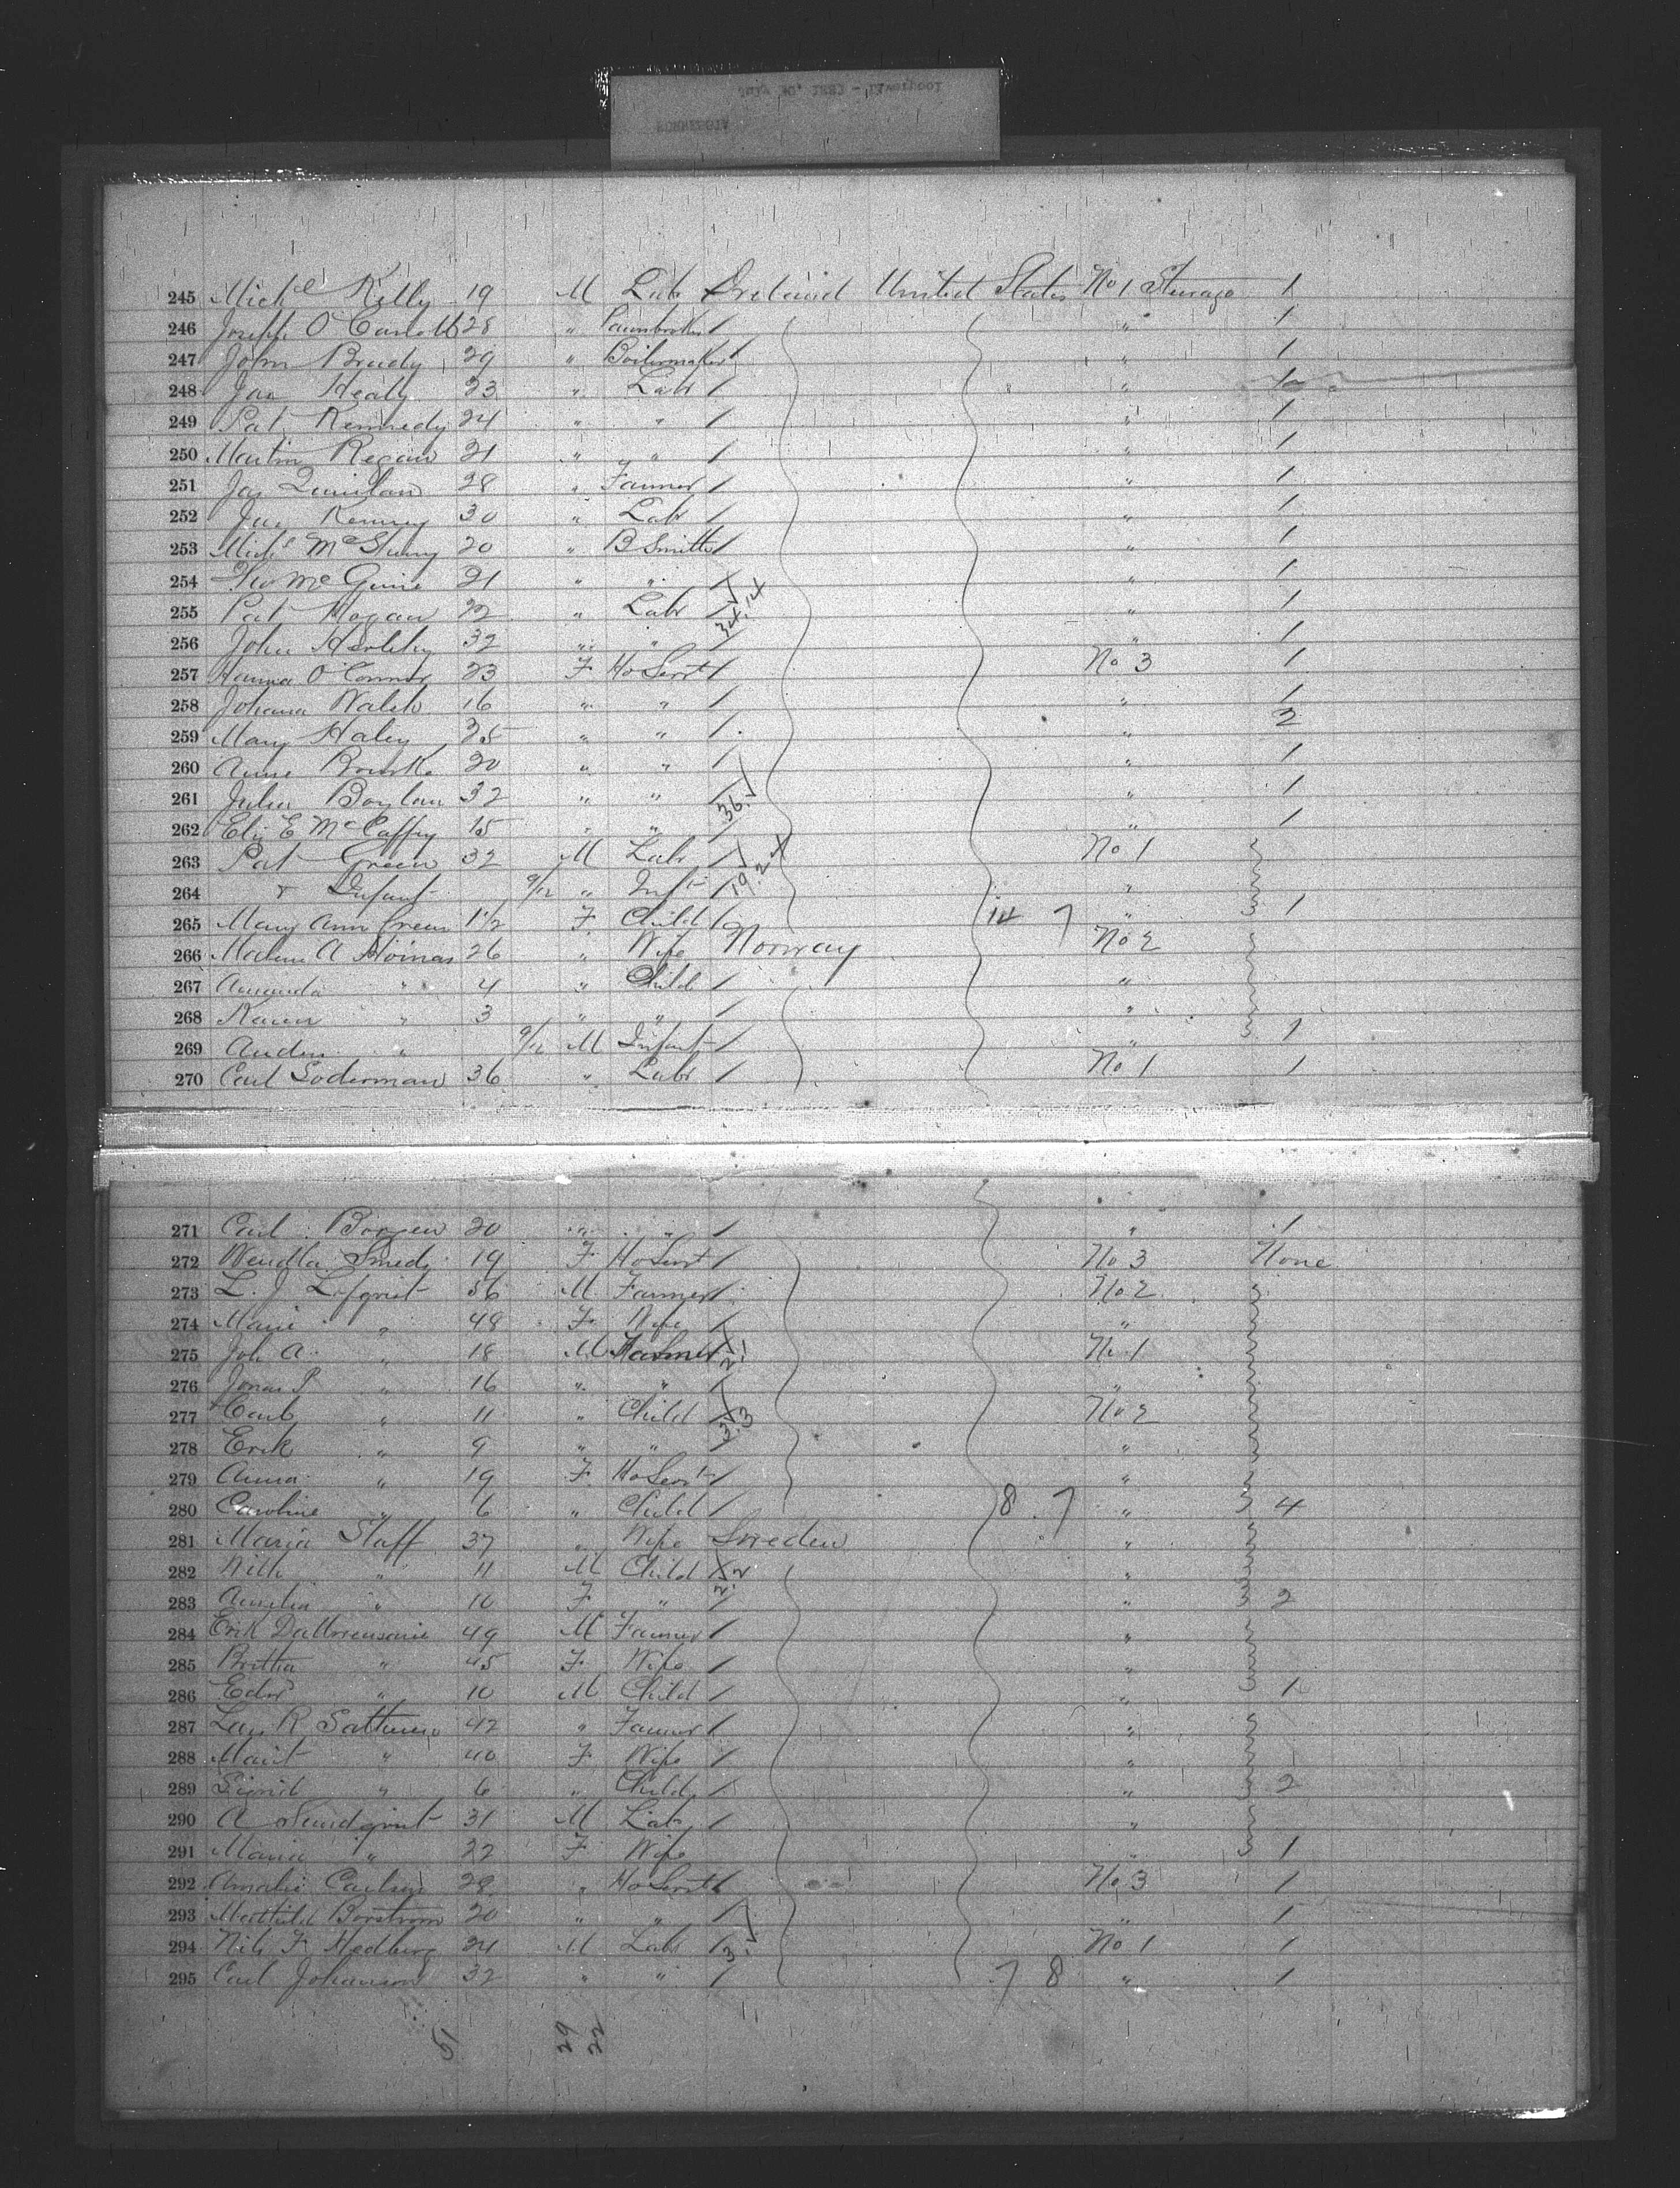 July 30, 1883 - Liverpool
245 Michl Kelly 19 M Labr Ireland United States No 1 Steerage 1
246 Joseph O 28 " Pawnbroker / " 1
247 John Brady 29 " Boilermaker / " 1
248 Jas Healy 23 " Labr / " 1
249 Pat Kennedy 24 " " / " 1
250 Martin Regan 21 " " / " 1
251 Jas Quinlan 28 " Farmer / " 1
252 Jas Kenny 30 " Labr / " 1
253 Michl 20 " B Smith / " 1
254 McGuire 21 " " / " 1
255 Pat Hogan 22 " Labr / " 1
256 John 32 " " / " 1
257 Hanna O'Connor 23 F Ho Servt / No 3 1
258 Johana Walsh 16 " " / " 1
259 Mary Haley 35 " " / " 2
260 Annie Rourke 20 " " / " 1
261 Julia Boylan 32 " " / 36 " 1
262 Eliz E McCaffry 15 " " / " 1
263 Pat Green 32 M Labr / No 1
264 & Infant 9/12 " Inft / 19.2 "
265 Mary Ann Green 1 1/2 F Child / 14 7 " 1
266 A 26 " Wife Norway No 2
267 Amanda " 4 " Child / "
268 Karen " 3 " " / "
269 Anders " 9/12 M Infant / " 1
270 Carl Soderman 36 " Labr / No 1 1
271 Carl 20 " " / " 1
272 Wendla Smeds 19 F Ho Servt / No 3 None
273 L. J Lofqvist 56 M Farmer / No 2
274 Marie " 48 F Wife / "
275 Joh A. " 18 M Farmer No 1
276 Jonas P " 16 " " / "
277 Carl " 11 " Child 3.3 No 2
278 Erik " 9 " " / "
279 Anna " 19 F Ho Servt / "
280 Caroline " 6 " Child / 8 7 " 4
281 Maria Staff 37 " Wife Sweden "
282 " 11 M Child 2.2 "
283 Amelia " 10 F " / " 2
284 Erik 49 M Farmer / "
285 Brittha " 45 F Wife / "
286 " 10 M Child / " 1
287 Lars R 42 " Farmer / "
288 Marit " 40 F Wife / "
289 Sigrid " 6 " Child / " 2
290 A Sundqvist 31 M Labr / "
291 Maria " 22 F Wife " 1
292 Amalie Carlson 28 " Ho Servt / No 3 1
293 Mathild Borstrom 20 " " / " 1
294 Nils F Hedberg 24 M Labr / 3 No 1 1
295 Carl Johanson 32 " " / 7 8 " 1
51 29
22